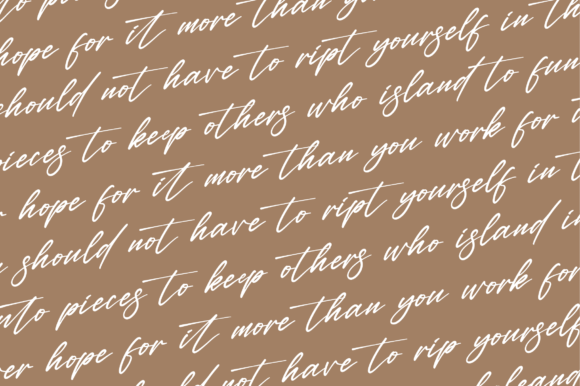 hope for it more than you
should not have to ript yourself in th
pieces to keep others who island to fun
r hope for it more than you work for
should not have to ript yourself in t
nto pieces to keep others who island in
er hope for it more than you work for
should not have to rip yourself